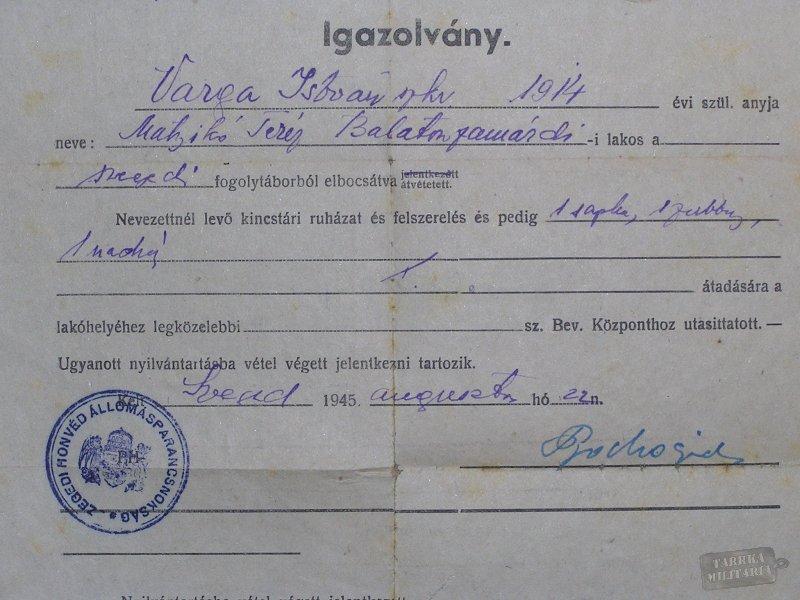 Igazolvány.
Varga István szkv. 1914 évi szül. anyja
neve: Matzikó Teréz Balatonzamárdi -i lakos a
szegedi fogolytáborból elbocsátva jelentkezett átvétetett.
Nevezettnél levő kincstári ruházat és felszerelés és pedig 1 sapka, 1 zubbony,
1 nadrág
átadására a
lakóhelyéhez legközelebbi sz. Bev. Központhoz utasittatott. —
Ugyanott nyilvántartásba vétel végett jelentkezni tartozik.
Kelt Szeged 1945. augusztus hó 22 n.
P.H.
SZEGEDI HONVÉD ÁLLOMÁSPARANCSNOKSÁG
Nyilvántartásba vétel végett jelentkezett
TARRKA MILITARIA